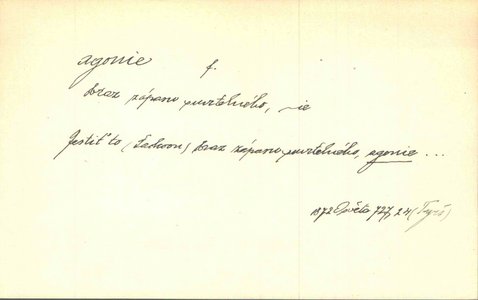 agonie f.
obraz zápasu smrtelného, – ie
Jestiť to (Laokoon) obraz zápasu smrtelného, agonie ...
1872 Osvěta 727, 24 (Tyrš)